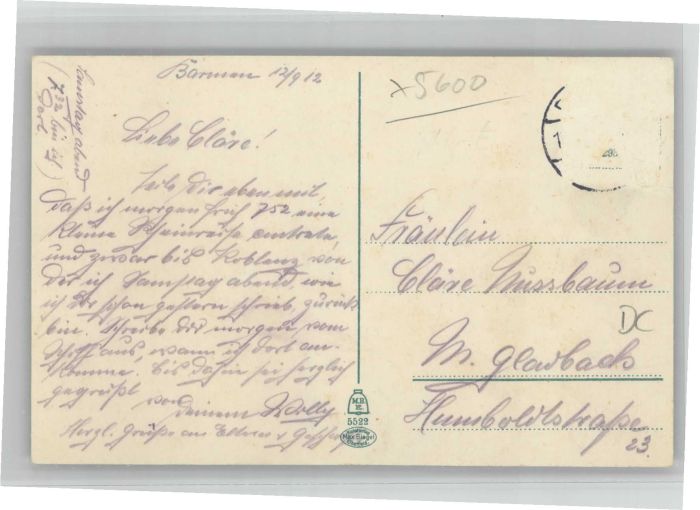 Barmen 12/9 12
Liebe Cläre!
Teile Dir eben mit,
daß ich morgen früh 7 52 eine
kleine Rheinreise antrete,
und zwar bis Koblenz von
der ich Samstag abend, wie
ich Dir schon gestern schrieb, zurück
bin. Schreibe Dir morgen vom
Schiff aus, wann ich dort an-
komme. Bis dahin sei herzlich
gegrüßt
von
deinem Willy
Herzl. Grüße an Eltern u
Samstag abend
(7 32 bin ich
dort)
x5600
Fräulein
Cläre Nussbaum
DC
M. Gladbach
Humboldtstraße
23.
5522